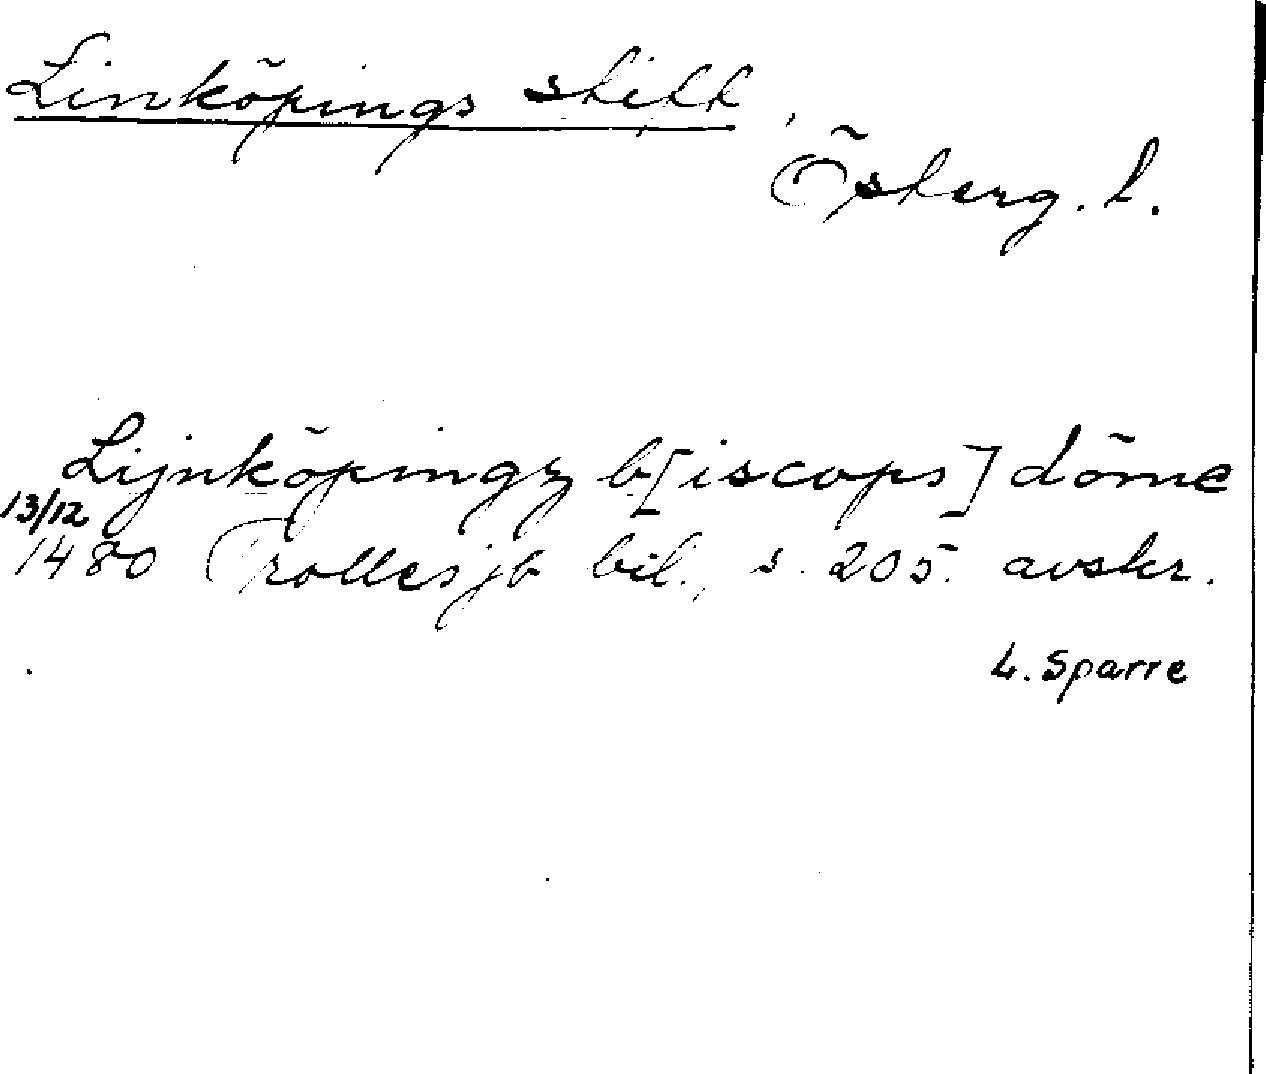 Linköpings stift,
Österg. l.
Lijnköpingz b[iscops] döme
13/12
1480 Trolles jb bil., s. 205. avskr.
L. Sparre